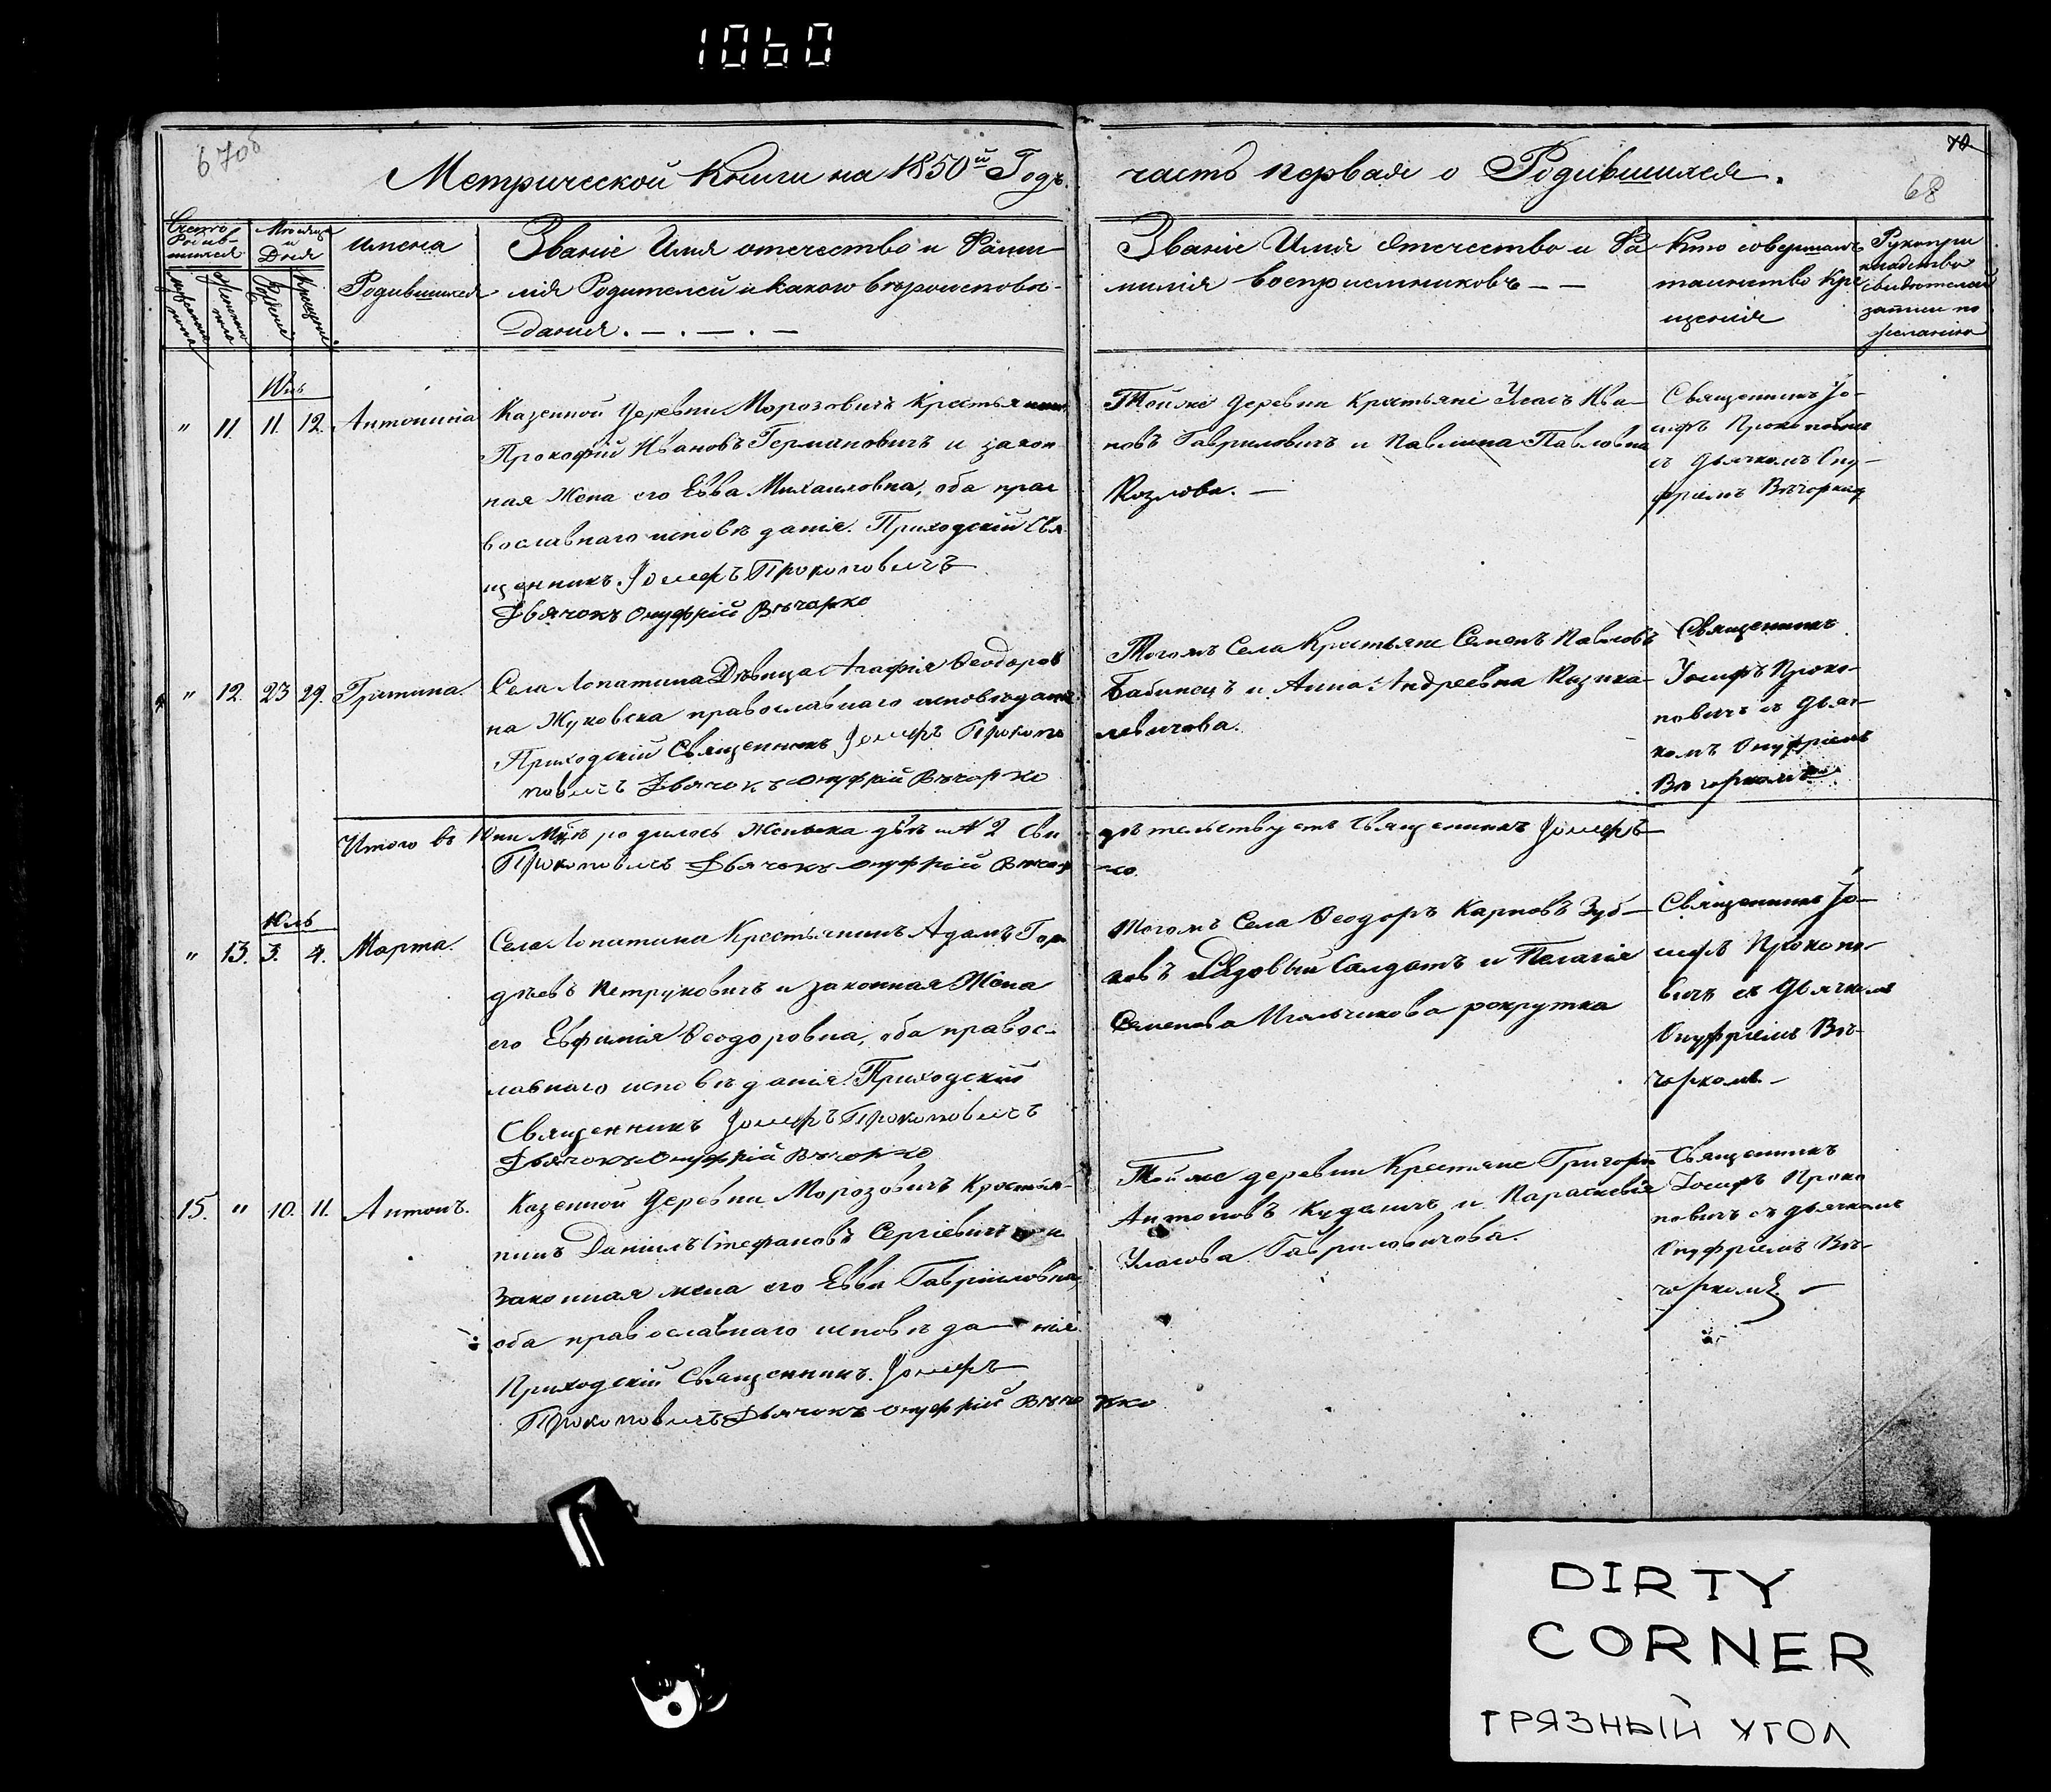 1060
67об
70
68
Метрической Книги на 1850й Годъ. часть первая о Родившихся.
Счетъ Родив-
шихся
Мѣсяцъ
и
Дня
мужеска
пола
женска
пола
Рожденія
Крещенія
имена
Родившихся
Званіе Имя отечество и Фами-
лія Родителей и какого вѣроисповѣ-
данія. — . — . —
Званіе Имя Отечество и Фа
милія восприемниковъ — —
Кто совершалъ
таинство Кре
щенія
Рукопри
кладство
свидѣтелей
записи по
желанію
Юнь
" 11. 11. 12. Антонина
Казенной Деревни Морозовичъ Крестьянинъ
Прокофій Ивановъ Германовичъ и закон
ная Жена его Евва Михаиловна, оба пра-
вославнаго исповѣданія. Приходскій Свя
щенникъ Іосифъ Прокоповичъ
Дьячокъ Онуфрій Вѣчорко
Тойже Деревни Крестьяне Уласъ Ива-
новъ Гавриловичъ и Павлина Павловна
Козлова. —
Священникъ Іо-
сифъ Прокоповичъ
съ Дьячкомъ Ону-
фріемъ Вѣчорком
" 12. 23 29. Грипина.
Села Лопатина Дѣвица Агафія Феодоров
на Жуковска православнаго исповѣданія
Приходскій Священникъ Іосифъ Прокопо
повичъ Дьячокъ Онуфрій Вѣчорко
Тогожъ Села Крестьяне Семенъ Павловъ
Бабинецъ и Анна Андреевна Кизика-
левичова.
Священникъ
Іосифъ Проко-
повичъ съ Дьяч-
комъ Онуфріемъ
Вѣчоркомъ
Итого въ Юни Мцѣ родилось женска Дѣтей № 2 Сви дѣтельствуетъ Священникъ Іосифъ
Прокоповичъ Дьячокъ Онуфрій Вѣчор -ко.
Юль
" 13. 3. 4. Марта.
Села Лопатина Крестьянинъ Адамъ Гор
дѣевъ Петруковичъ и законная Жена
его Евфимія Феодоровна, оба правос-
лавнаго исповѣданія. Приходскій
Священникъ Іосифъ Прокоповичъ
Дьячокъ Онуфрій Вѣчорко
Тогожъ Села Феодоръ Карповъ Зуб-
ковъ Рядовый Салдатъ и Пелагія
Семенова Игальчикова рокрутка
Священникъ Іо-
сифъ Прокопо-
вичъ съ Дьячкомъ
Онуфріемъ Вѣ-
чоркомъ —
15. " 10. 11. Антонъ.
Казенной Деревни Морозовичъ Крестья-
нинъ Даніилъ Стефановъ Сергіевичъ и
Законная жена его Евва Гавріиловна,
оба православнаго исповѣда нія.
Приходскій Священникъ. Іосифъ
Прокоповичъ Дьячокъ Онуфрій Вѣчо рко
Тойже деревни Крестяне Григорій
Антоновъ Кудличъ и Параскевія
Уласова Гавриловичова.
Священникъ
Іосифъ Проко
повичъ съ дьячкомъ
Онуфріемъ Вѣ-
чоркомъ —
DIRTY
CORNER
ГРЯЗНЫЙ УГОЛ